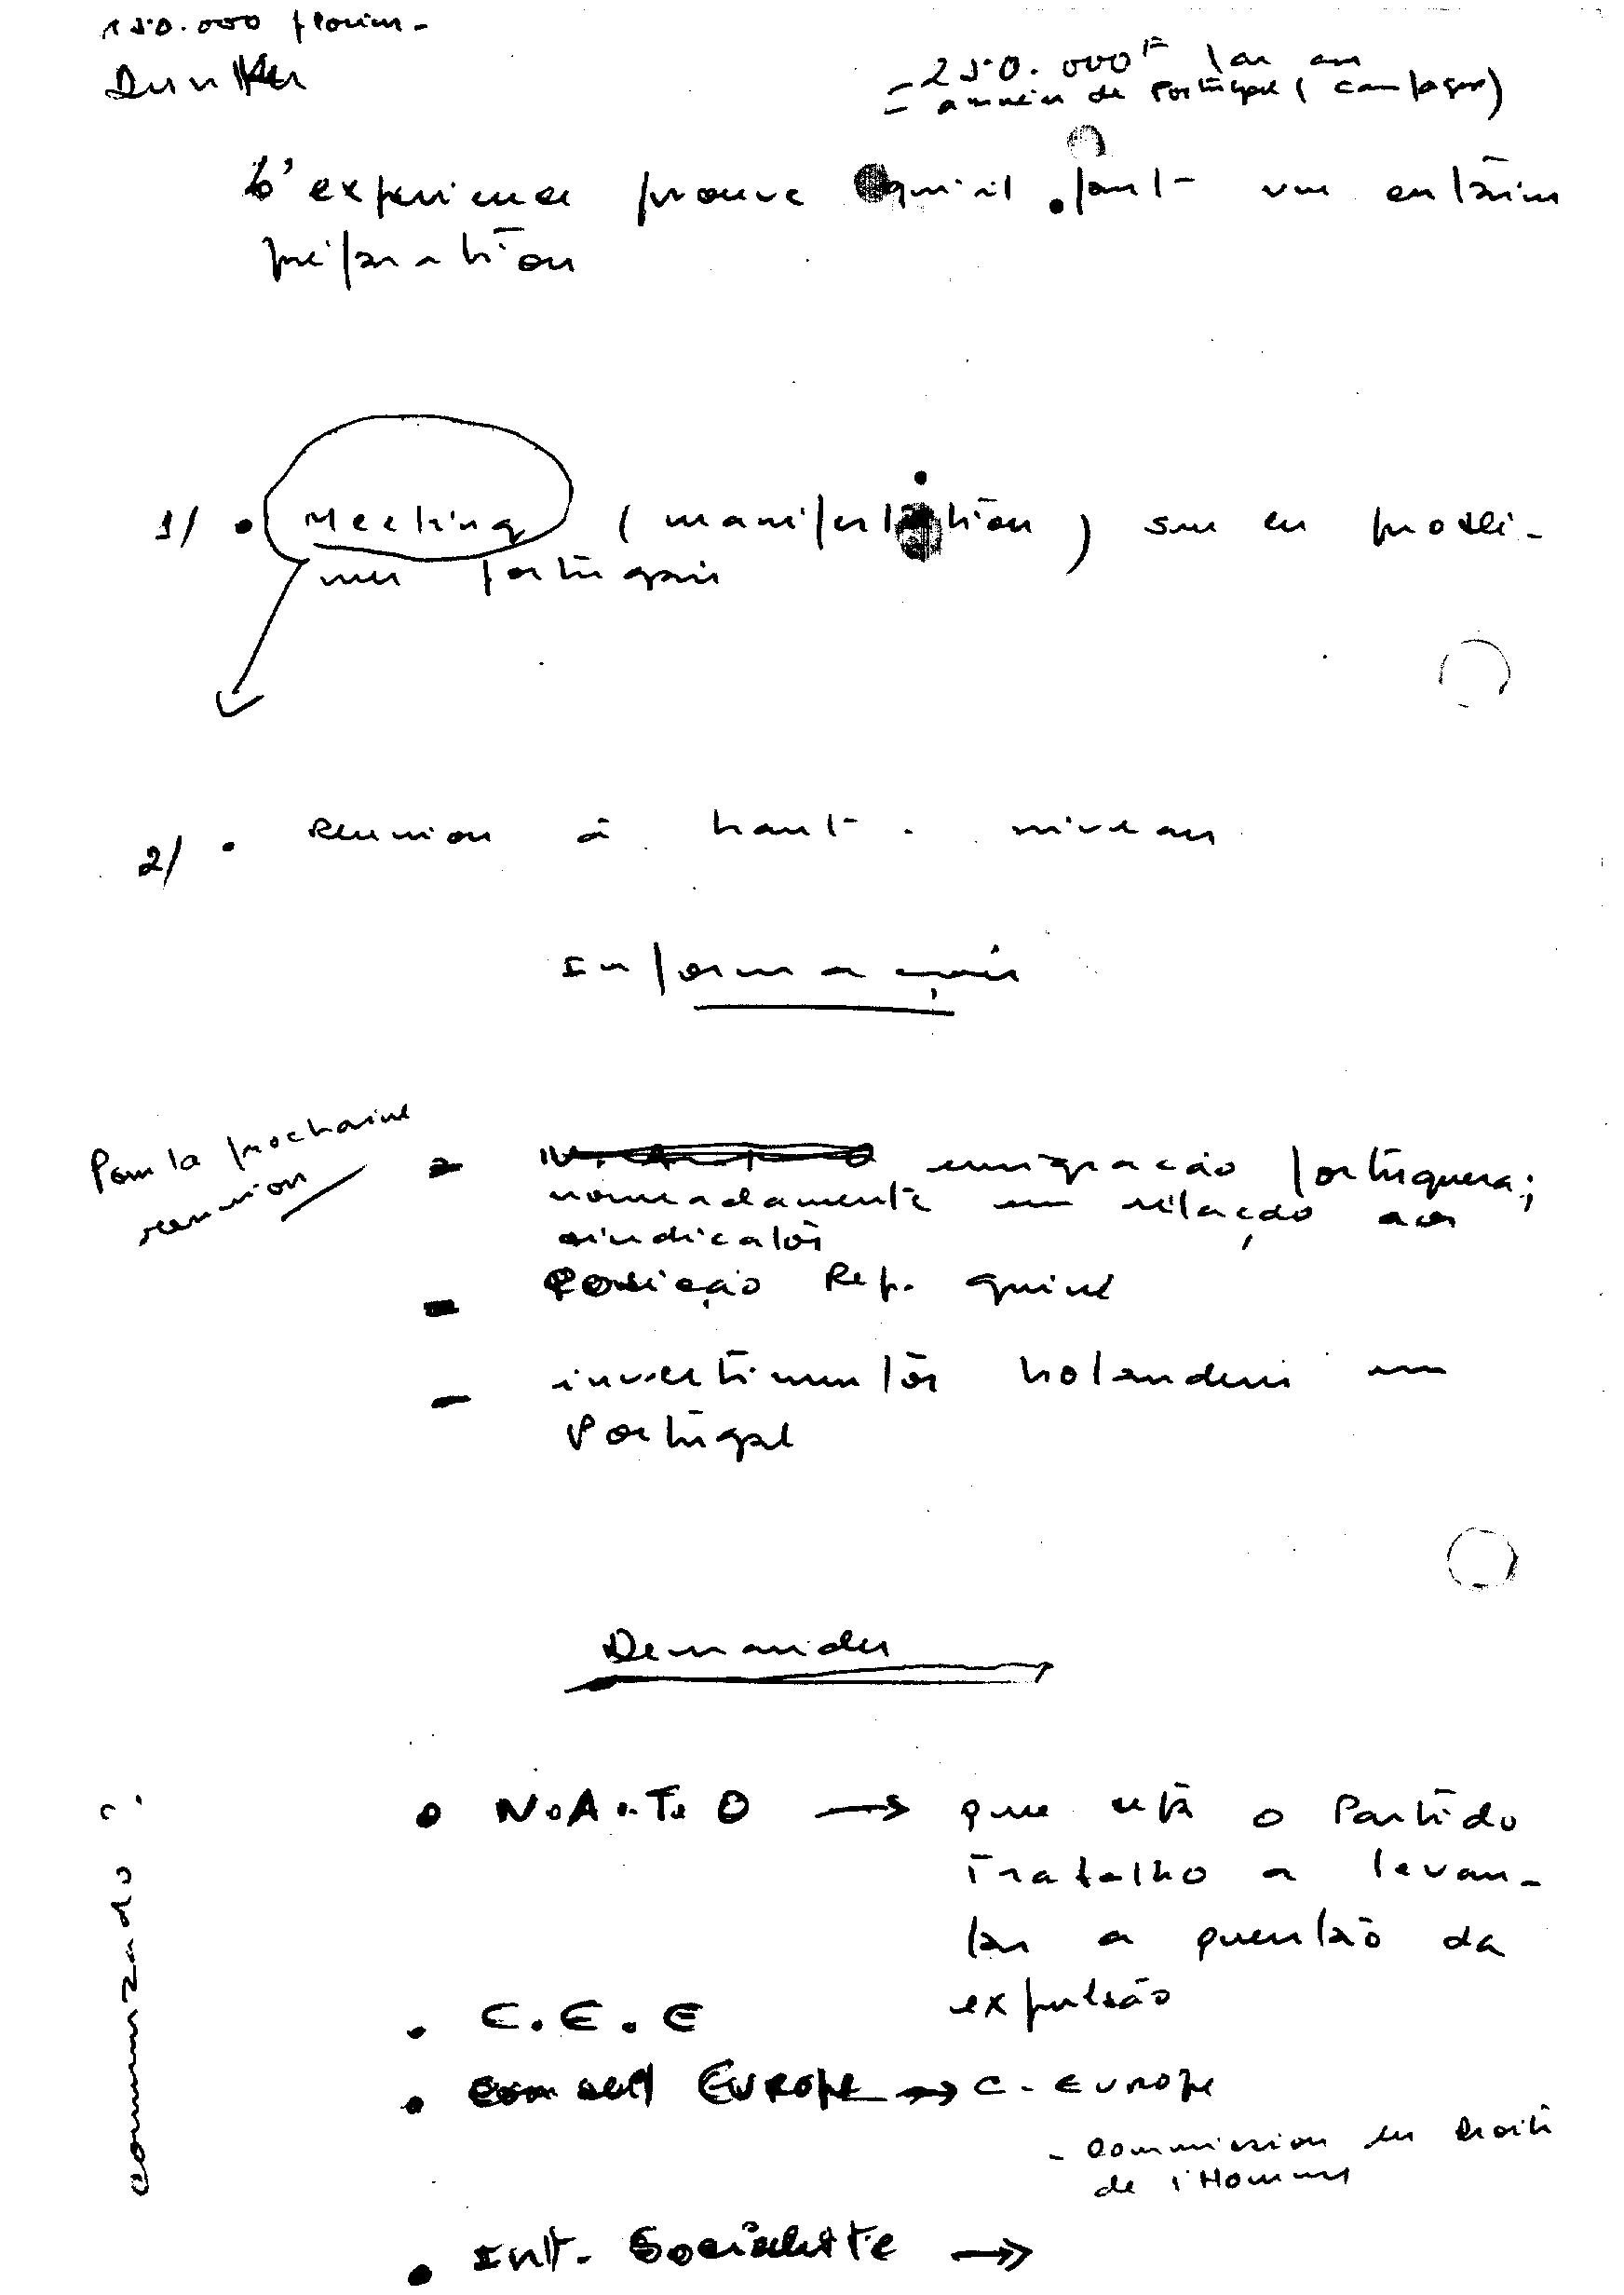 150.000 florins -
- 250.000 F par an
- année de Portugal (campagne)
L'experience prouve qu'il faut une certaine
préparation
1/ • Meeting (manifestation) sur les problè-
mes portugais
2/ • Reunion à haut - niveau
Informações
Pour la prochaine
reunion
- emigração portuguesa;
nomeadamente em relação aos
sindicatos
- Posição Rep. Guiné
- investimentos holandeses em
Portugal
Demandes
• N.A.T.O → que está o Partido
Trabalho a levan-
tar a questão da
expulsão
• C.E.E
• Conseil Europe → C. Europe
- Commission des Droits
de l'Homme
• Int. Socialiste →